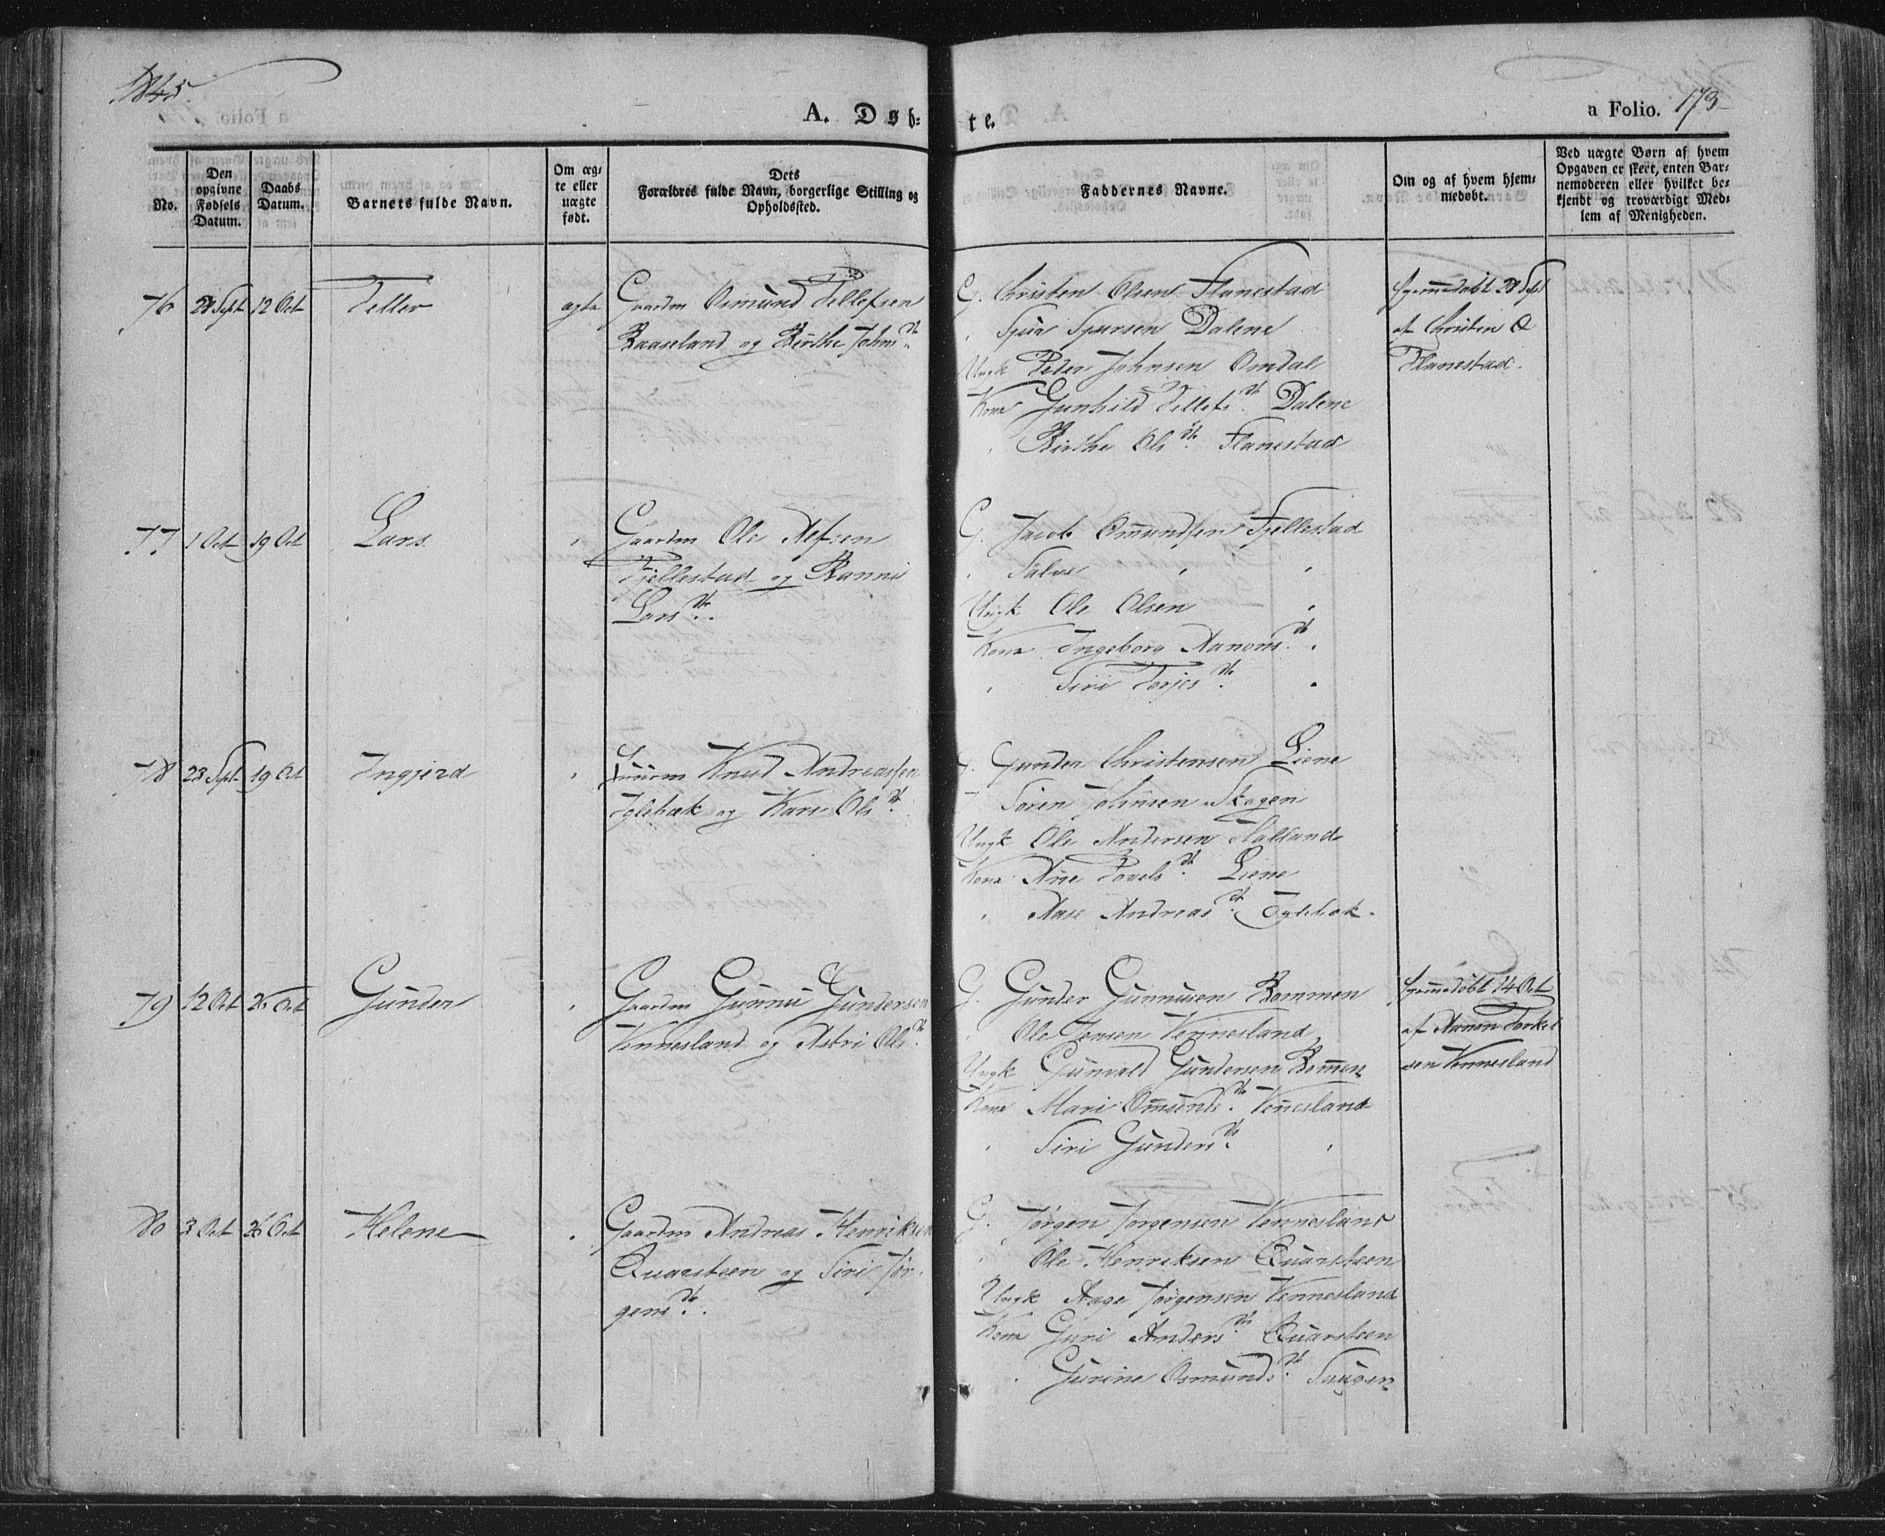 1845.
A. Døb-
te.
a Folio. 173
No.
Den opgivne Fødsels Datum.
Daabs Datum.
Barnets fulde Navn.
Om ægte eller uægte født.
Dets Forældres fulde Navn, borgerlige Stilling og Opholdssted.
Faddernes Navne.
Om og af hvem hjemmedøbt.
Ved uægte Børn af hvem Opgaven er skeet, enten Barnemoderen eller hvilket bekjendt og troværdigt Medlem af Menigheden.
76 21 Sept 12 Oct Tellev ægte Gaardm Osmund Tellefsen
Raaseland og Birthe Johns dtr.
G. Christen Olsen Flanestad
" Sjur Sjursen Dalene
Ungk Peder Johnsen Omdal
Kone Gunhild Tellefs dtr. Dalene
" Birthe Ols dtr. Flanestad
hjemmedøbt 28 Sept
af Christen O
Flanestad.
77 1 Oct 19 Oct Lars " Gaardm Ole Alfsen
Fjellestad og Ranni
Lars dtr.
G. Jacob Omundsen Fjellestad
" Salve " "
Ungk Ole Olsen "
Kone Ingeborg Aanons dtr. "
" Siri Torjes dtr. "
78 23 Sept 19 Oct Ingjerd " Knud Andreassen
Iglebæk og Kari Ols dtr.
G. Gunder Christensen Liene
" Søren Johnsen Skogen
Ungk Ole Andersen Halland
Kone Ane Povels dtr. Liene
" Aase Andreas dtr. Iglebæk.
79 12 Oct 26 Oct Gunder " Gaardm Gunnu Gundersen
Vennesland og Astri Ols dtr.
G. Gunder Gunnusen Rommen
" Ole Jensen Vennesland
Ungk Gunvald Gundersen Rommen
Kone Mari Omunds dtr. Vennesland
" Siri Gunders dtr. "
hjemmedøbt 14 Oct
af Aanon Torkel
sen Vennesland
80 3 Oct 26 Oct Helene " Gaardm Andreas Henriksen
Quarsteen og Siri Jør
gens dtr.
G. Jørgen Jørgensen Vennesland
" Ole Henriksen Quarsteen
Ungk Aage Jørgensen Vennesland
Kone Guri Anders dtr. Quarsteen
" Gurine Osmunds dtr. Haugen